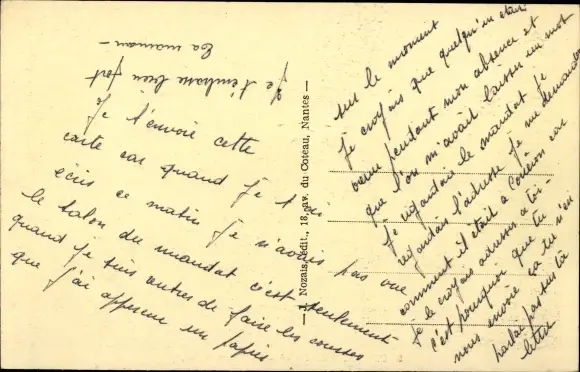 Je t'envoie cette
carte car quand je t'ai
écris ce matin je n'avais pas vue
le talon du mandat c'est seulement
quand je suis entrer de faire les courses
que j'ai apperçu un papier
sur le moment
je croyais que quelqu'un était
venu pendant mon absence et
que l'on m'avait laisser un mot
Je regardais le mandat je
regardais l'adresse je me demandais
comment il était à Couëron car
je le croyais adressé à toi
c'est pourquoi que tu
nous envoie ça tu n'en
parlai pas sur ta
lettre
Je t'embrasse bien fort
Ta maman
— J. Nozais, édit., 18, av. du Coteau, Nantes —